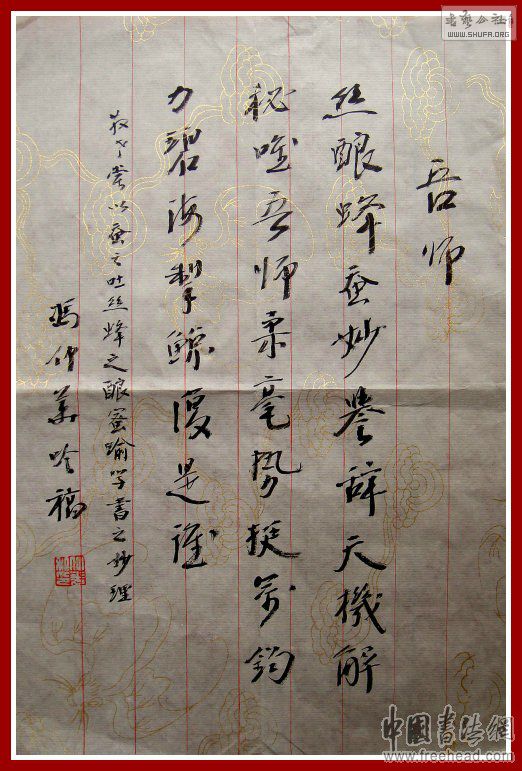 吾师
丝酿蜂蚕妙辞天機解
秘唯吾师柔毫势挺萬钧
力碧海掣鲸復是谁
常以蚕之吐丝蜂之酿蜜喻学書之妙理
冯仲華吟稿
書藝公社
WWW.SHUFA.ORG
中國書法網
www.freehead.com